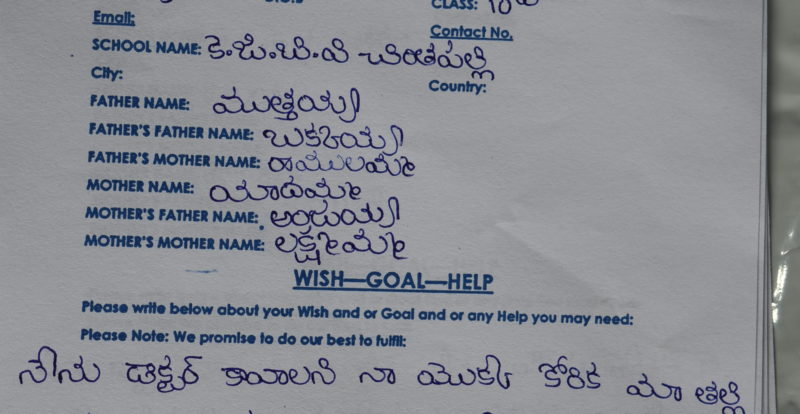 CLASS: 10
Email:
Contact No.
SCHOOL NAME: కె.జి.బి.వి చింతపల్లి
City:
Country:
FATHER NAME: ముత్తయ్య
FATHER'S FATHER NAME: బుకకయ్య
FATHER'S MOTHER NAME: రాములమ్మ
MOTHER NAME: యాదమ్మ
MOTHER'S FATHER NAME: అంజయ్య
MOTHER'S MOTHER NAME: లక్ష్మమ్మ
WISH—GOAL—HELP
Please write below about your Wish and or Goal and or any Help you may need:
Please Note: We promise to do our best to fulfil:
నేను డాక్టర్ కావాలని నా యొక్క కోరిక మా తల్లి